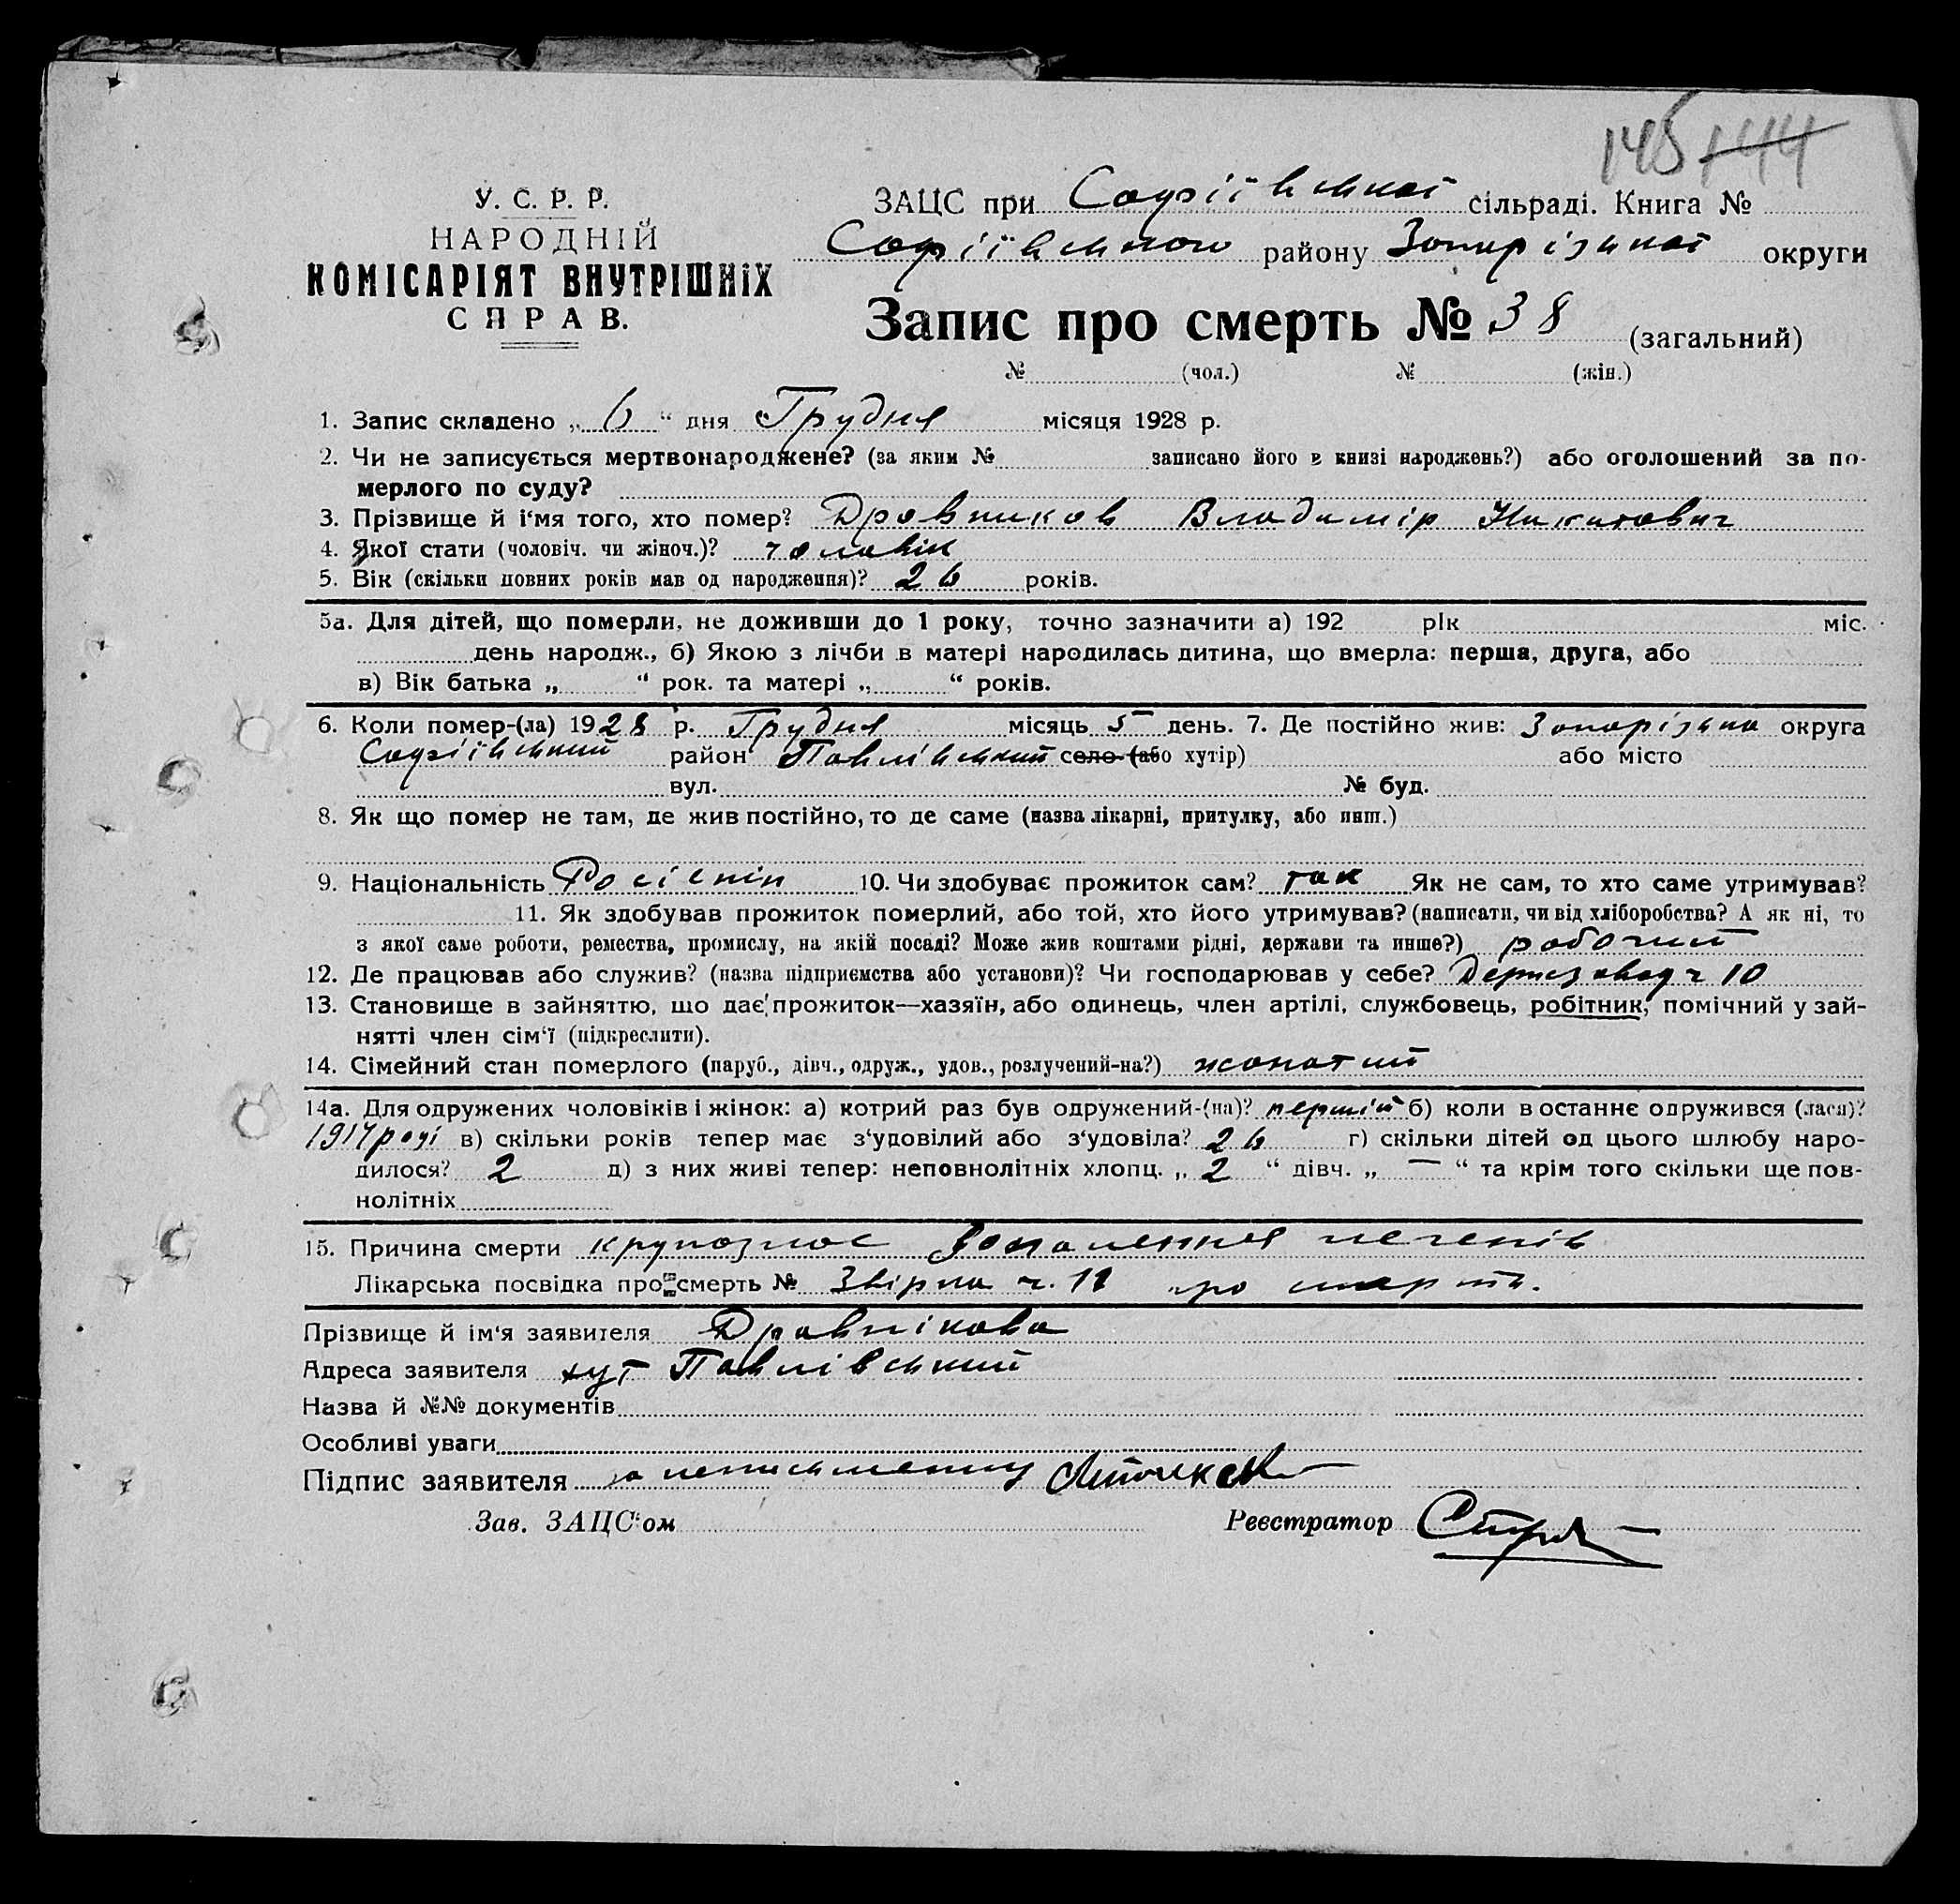 145 144
У. С. Р. Р.
НАРОДНІЙ
КОМІСАРІЯТ ВНУТРІШНІХ
СПРАВ.
ЗАЦС при Софіївській сільраді. Книга №
Софіївського району Запорізької округи
Запис про смерть № 38 (загальний)
№ (чол.) № (жін.)
1. Запис складено „ 6 “ дня Грудня місяця 1928 р.
2. Чи не записується мертвонароджене? (за яким № записано його в книзі народжень?) або оголошений за по-
мерлого по суду?
3. Прізвище й і‘мя того, хто помер? Дровников Владимір Никитович
4. Якої стати (чоловіч. чи жіноч.)? чоловік
5. Вік (скільки повних років мав од народження)? 26 років.
5а. Для дітей, що померли, не доживши до 1 року, точно зазначити а) 192 рік міс.
день народж., б) Якою з лічби в матері народилась дитина, що вмерла: перша, друга, або
в) Вік батька „ “ рок. та матері „ “ років.
6. Коли помер-(ла) 1928 р. Грудня місяць 5 день. 7. Де постійно жив: Запорізька округа
Софіївський район Павлівський село (або хутір) або місто
вул. № буд.
8. Як що помер не там, де жив постійно, то де саме (назва лікарні, притулку, або инш.)
9. Національність Росіснін 10. Чи здобуває прожиток сам? так Як не сам, то хто саме утримував?
11. Як здобував прожиток померлий, або той, хто його утримував? (написати, чи від хліборобства? А як ні, то
з якої саме роботи, ремества, промислу, на якій посаді? Може жив коштами рідні, держави та инше?) робочий
12. Де працював або служив? (назва підприємства або установи)? Чи господарював у себе? Держзавод ч 10
13. Становище в зайняттю, що дає прожиток—хазяїн, або одинець, член артілі, службовець, робітник, помічний у зай-
нятті член сім‘ї (підкреслити).
14. Сімейний стан померлого (паруб., дівч., одруж., удов., розлучений-на?) жонатий
14а. Для одружених чоловіків і жінок: а) котрий раз був одружений-(на)? перший б) коли в останнє одружився (лася)?
1917 році в) скільки років тепер має з‘удовілий або з‘удовіла? 26 г) скільки дітей од цього шлюбу наро-
дилося? 2 д) з них живі тепер: неповнолітніх хлопц. „ 2 “ дівч. „ — “ та крім того скільки ще пов-
нолітніх
15. Причина смерти крупозное Запалення легенів
Лікарська посвідка про смерть № Звірка ч. 11 про смерть.
Прізвище й ім‘я заявителя Дровнікова
Адреса заявителя хут Павлівський
Назва й №№ документів
Особливі уваги
Підпис заявителя за неписьменну
Зав. ЗАЦС‘ом Реєстратор